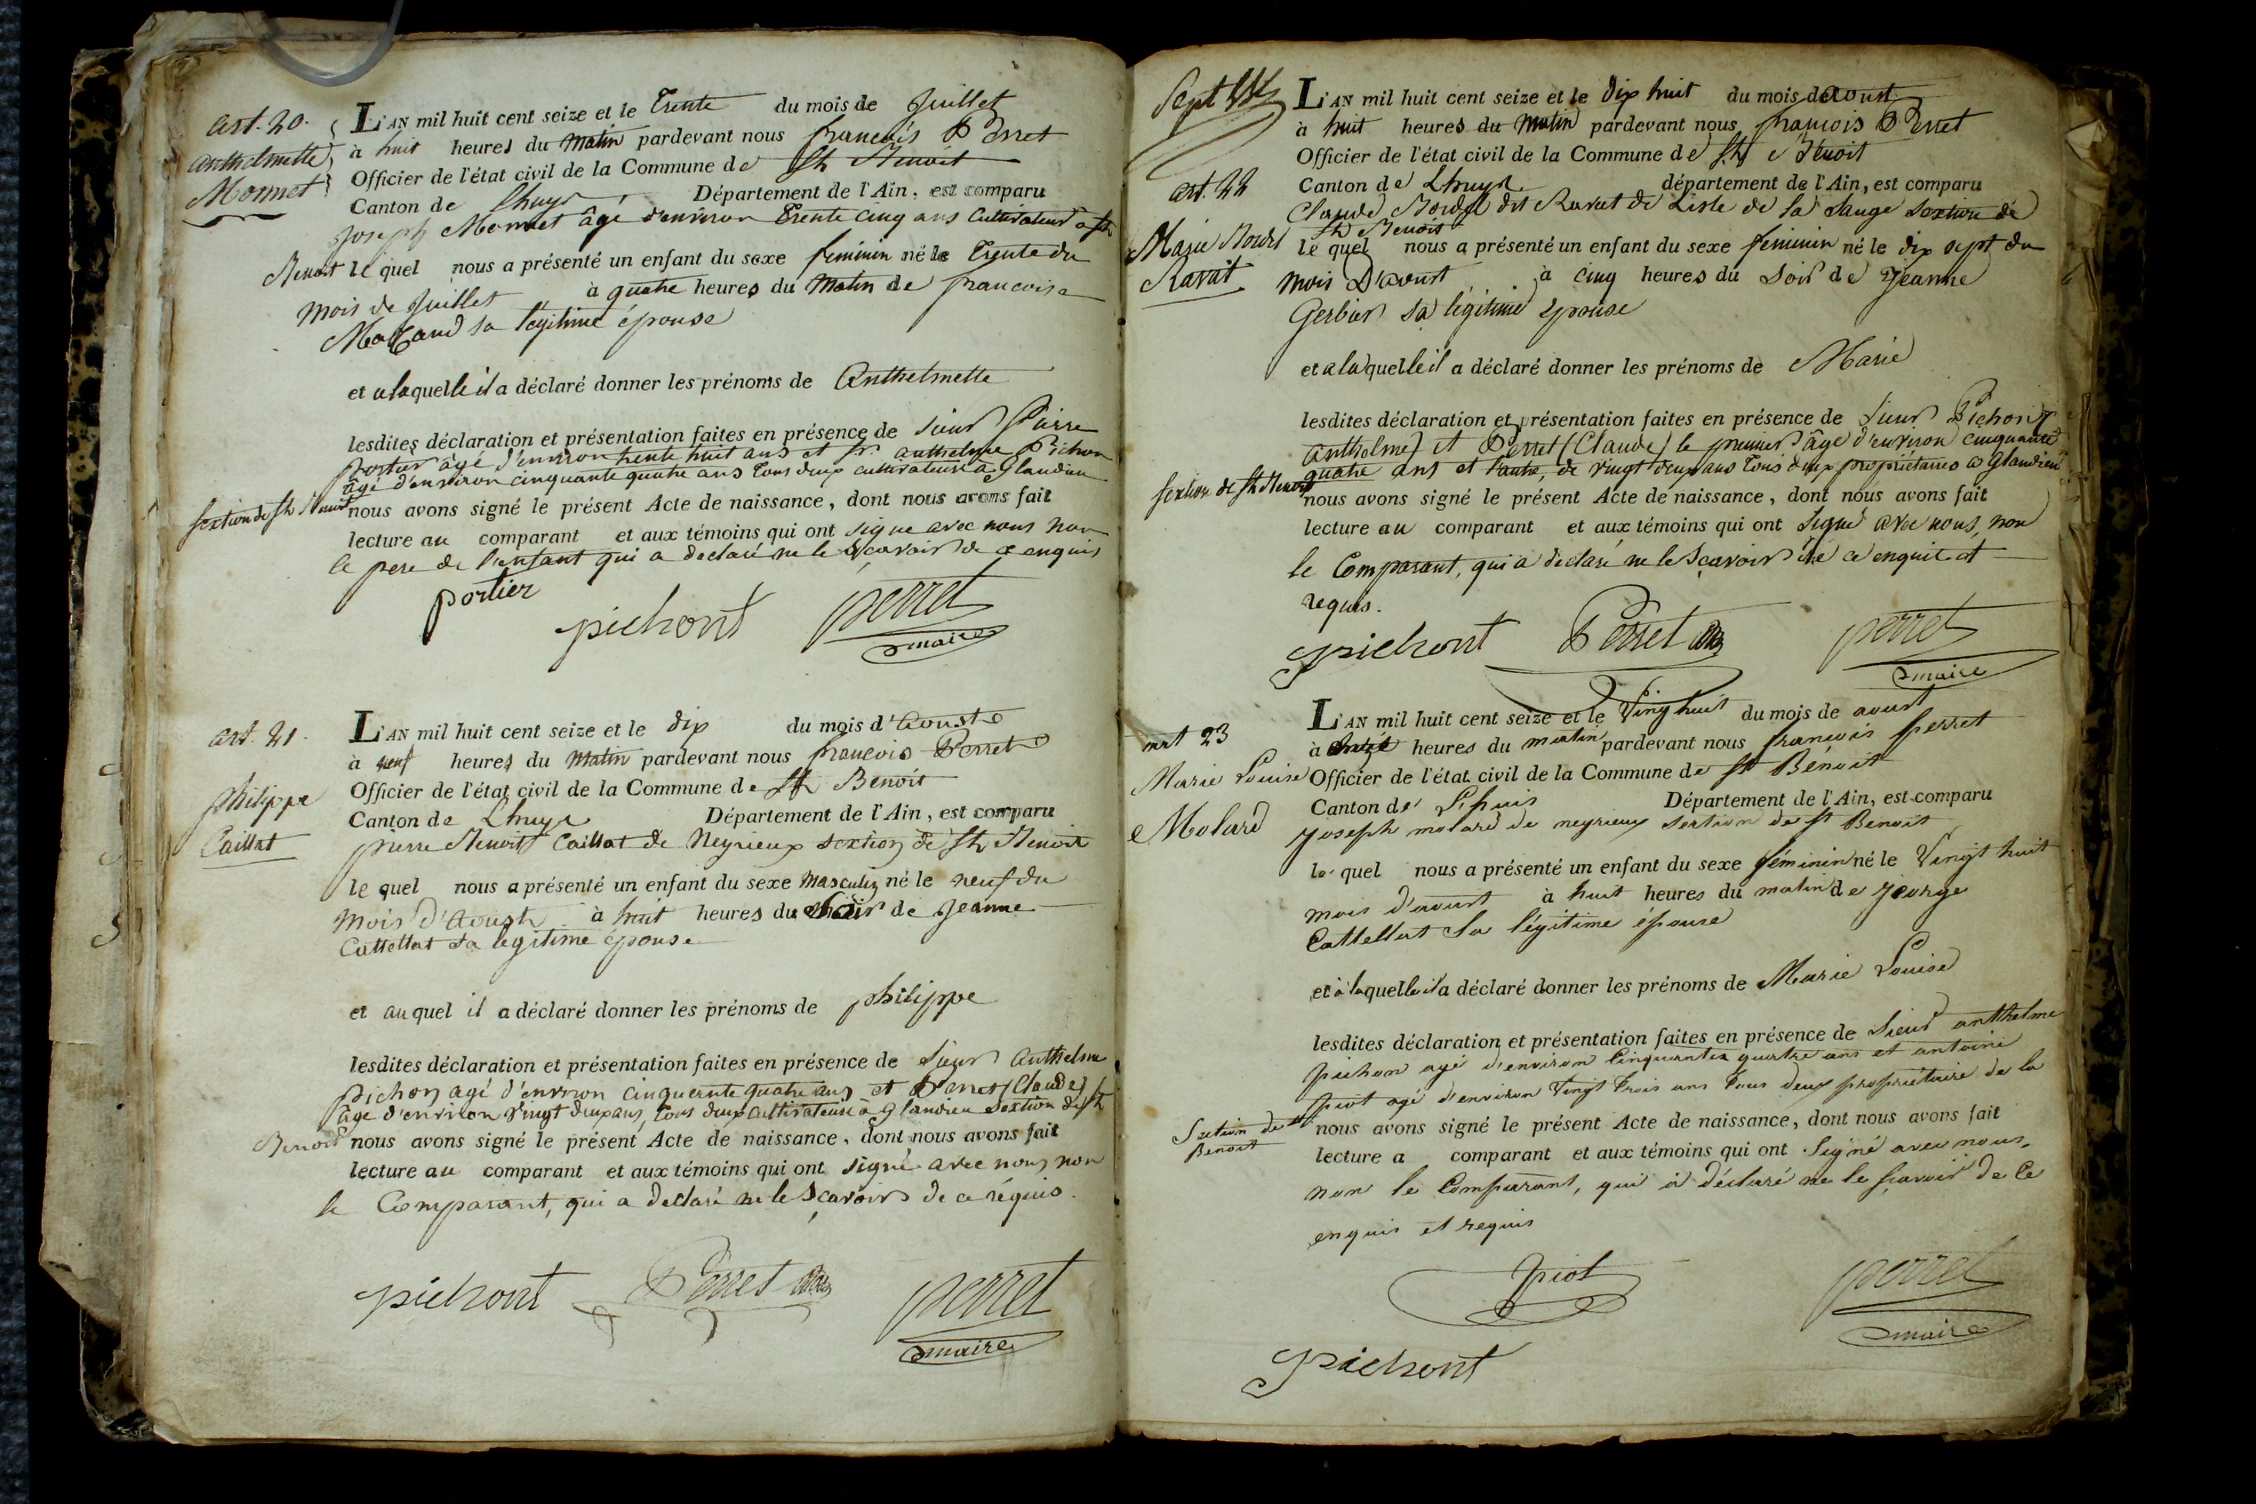 art. 20.
anthelmette
Monnet
L'AN mil huit cent seize et le Trente du mois de Juillet
à huit heures du matin pardevant nous françois Perret
Officier de l'état civil de la Commune de St Benoit
Canton de Lhuys Département de l'Ain, est comparu
Joseph Monnet âgé d'environ Trente cinq ans Cultivateur à St
Benoit le quel nous a présenté un enfant du sexe feminin né le Trente du
mois de Juillet à quatre heures du Matin de francoise
sa légitime épouse
et a laquelle il a déclaré donner les prénoms de Anthelmette
lesdites déclaration et présentation faites en présence de sieur Pierre
portier âgé d'environ trente huit ans et Sr. anthelme Pichon
âgé d'environ cinquante quatre ans tous deux cultivateurs à Glandieu
section de St Benoit nous avons signé le présent Acte de naissance, dont nous avons fait
lecture au comparant et aux témoins qui ont signé avec nous non
le pere de l'enfant qui a declaré ne le sçavoir de ce enquis
portier
pichont perret
maire
art. 21.
philippe
Caillat
L'AN mil huit cent seize et le dix du mois d'Aoust
à neuf heures du Matin pardevant nous françois Perret
Officier de l'état civil de la Commune de St Benoit
Canton de Lhuys Département de l'Ain, est comparu
pierre Benoit Caillat de Neyrieux sextion de St Benoit
le quel nous a présenté un enfant du sexe Masculin né le neuf du
mois d'Aoust à huit heures du soir de Jeanne
Cattellat sa legitime épouse
et au quel il a déclaré donner les prénoms de philippe
lesdites déclaration et présentation faites en présence de sieur Anthelme
Pichon agé d'environ cinquente quatre ans et Perret (Claude)
âgé d'environ vingt deux ans, tous deux cultivateurs à Glandieu sextion de St
Benoit nous avons signé le présent Acte de naissance, dont nous avons fait
lecture au comparant et aux témoins qui ont signé avec nous non
le Comparant, qui a declaré ne le sçavoir de ce réquis.
pichont Perret perret
maire
Sept
art. 22
Marie
Ravat
L'AN mil huit cent seize et le dix huit du mois de aoust
à huit heures du matin pardevant nous françois Perret
Officier de l'état civil de la Commune de St Benoit
Canton de Lhuys département de l'Ain, est comparu
Claude dit Ravat de Liste de la Sauge sextion de
St Benoit
le quel nous a présenté un enfant du sexe feminin né le dix sept du
mois D'aoust à cinq heures du soir de Jeanne
Gerbier sa légitime épouse
et a la quelle il a déclaré donner les prénoms de Marie
lesdites déclaration et présentation faites en présence de sieur Pichon
(anthelme) et Perret (Claude) le premier âgé d'environ cinquante
quatre ans et l'autre, de vingt deux ans tous deux propriétaires à Glandieu
sextion de St Benoit nous avons signé le présent Acte de naissance, dont nous avons fait
lecture au comparant et aux témoins qui ont signé avec nous, non
le Comparant, qui a déclaré ne le sçavoir de ce enquit et
requis.
pichont Perret perret
maire
art 23
Marie Louise
Molard
L'AN mil huit cent seize et le Vingt huit du mois de aoust
à heures du matin pardevant nous francois perret
Officier de l'état civil de la Commune de St Benoit
Canton de Lhuis Département de l'Ain, est comparu
Joseph molard de neyrieux section de St Benoit
le quel nous a présenté un enfant du sexe féminin né le Vingt huit
mois d'aoust à huit heures du matin de george
Cattellat sa légitime épouse
et à laquelle il a déclaré donner les prénoms de Marie Louise
lesdites déclaration et présentation faites en présence de sieur anthelme
pichon agé d'environ Cinquante quatre ans et antoine
piot agé d'environ Vingt trois ans tous deux propriétaire de la
Section de St Benoit nous avons signé le présent Acte de naissance, dont nous avons fait
lecture a comparant et aux témoins qui ont signé avec nous,
non le Comparant, qui à déclaré ne le sçavoir de Ce
enquis et requis
piot perret
maire
pichont